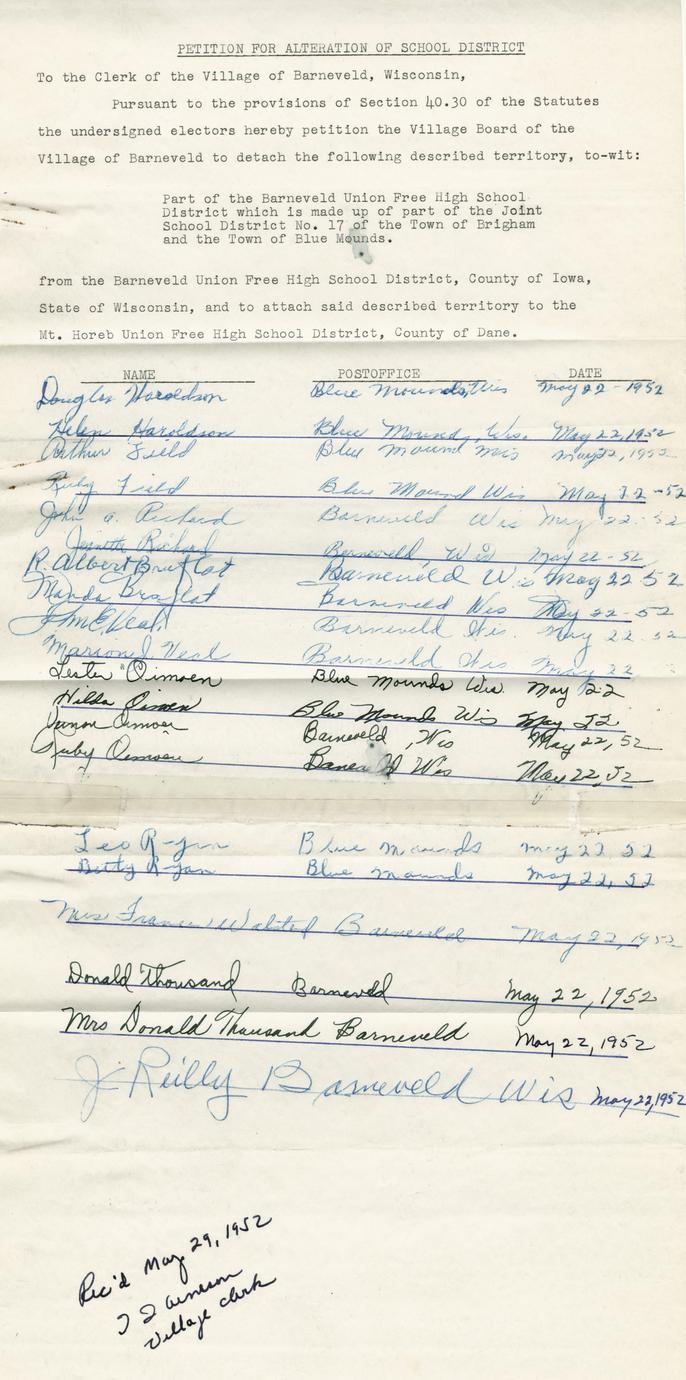 PETITION FOR ALTERATION OF SCHOOL DISTRICT
To the Clerk of the Village of Barneveld, Wisconsin,
Pursuant to the provisions of Section 40.30 of the Statutes
the undersigned electors hereby petition the Village Board of the
Village of Barneveld to detach the following described territory, to-wit:
Part of the Barneveld Union Free High School
District which is made up of part of the Joint
School District No. 17 of the Town of Brigham
and the Town of Blue Mounds.
from the Barneveld Union Free High School District, County of Iowa,
State of Wisconsin, and to attach said described territory to the
Mt. Horeb Union Free High School District, County of Dane.
NAME POSTOFFICE DATE
Douglas Haroldson Blue Mounds, Wis May 22 - 1952
Helen Haroldson Blue Mound, Wis. May 22, 1952
Arthur Field Blue Mound Wis May 22, 1952
Ruby Field Blue Mound Wis May 22 - 52
John A. Richard Barneveld Wis May 22 - 52
Jeanette Richard Barneveld, Wis May 22 - 52
R. Albert Brattlat Barneveld Wis May 22 52
Manda Barneveld Wis May 22 - 52
Barneveld Wis. May 22 52
Neal Barneveld Wis May 22
Lester Oimoen Blue Mounds Wis. May 22
Hilda Oimoen Blue Mounds Wis May 22
Vernon Oimoen Barneveld, Wis May 22, 52
Ruby Oimoen Wis May 22, 52
Leo Ryan Blue Mounds May 22 52
Betty Ryan Blue Mounds May 22, 52
Mrs Barneveld May 22, 1952
Donald Thousand Barneveld May 22, 1952
Mrs Donald Thousand Barneveld May 22, 1952
J Reilly Barneveld Wis May 22, 1952
Rec'd May 29, 1952
Arneson
Village clerk